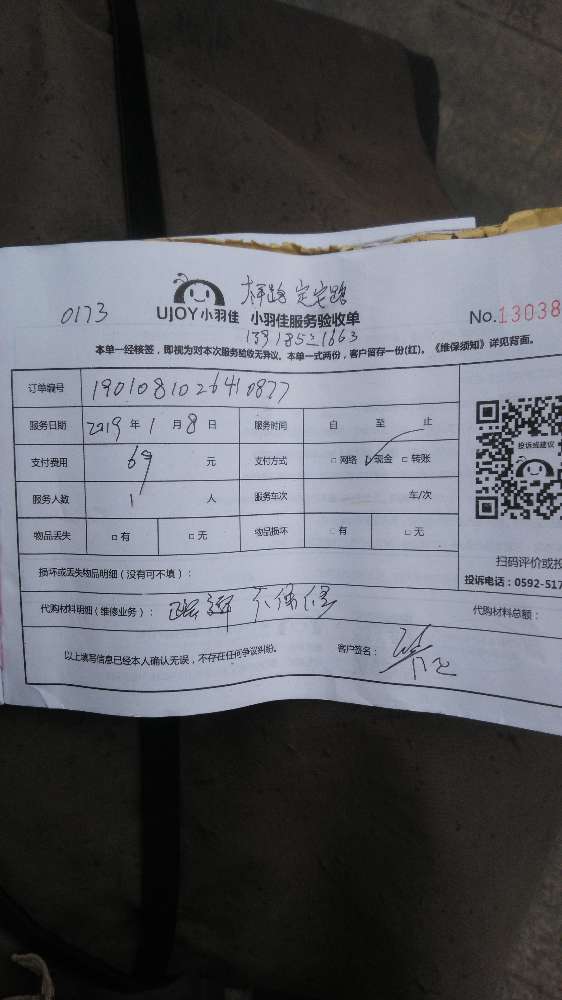 0173
UJOY 小羽佳 小羽佳服务验收单
No.13038
本单一经核签，即视为对本次服务验收无异议。本单一式两份，客户留存一份(红)。《维保须知》详见背面。
订单编号 1901081026410877
服务日期 2019 年 1 月 8 日 服务时间 自 至 止
支付费用 69 元 支付方式 □网络 ☑现金 □转账
服务人数 1 人 服务车次 车/次
物品丢失 □有 □无 物品损坏 □有 □无
投诉或建议
UJOY
损坏或丢失物品明细（没有可不填）：
扫码评价或投
投诉电话：0592-517
代购材料明细（维修业务）：
代购材料总额：
以上填写信息已经本人确认无误，不存在任何争议纠纷。 客户签名：